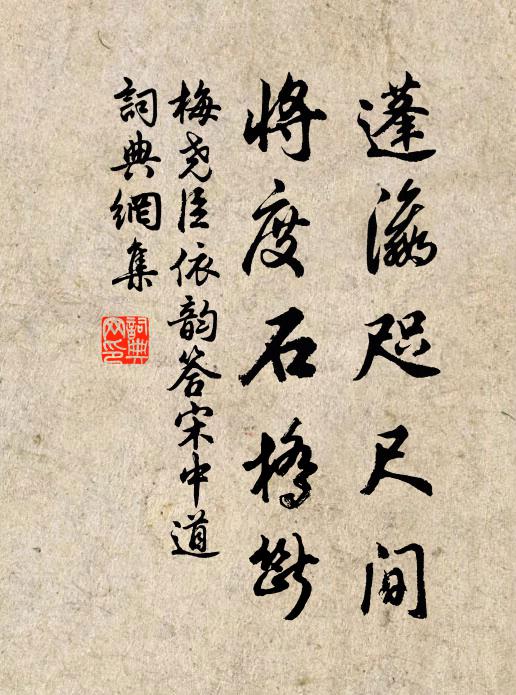 蓬瀛咫尺间
将度石橋斷
梅尧臣依韵答宋中道
詞典網集
詞典
网印